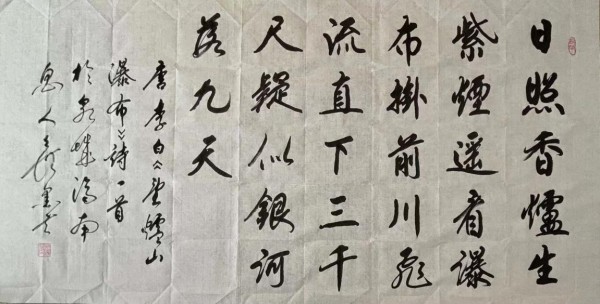 日照香爐生
紫煙遥看瀑
布掛前川飛
流直下三千
尺疑似銀河
落九天
唐李白《望廬山
瀑布》詩一首
於泉城济南
人